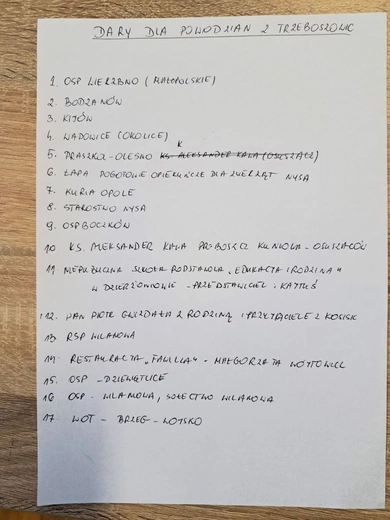 DARY DLA POWODZIAN Z TRZEBOSZOWIC
1. OSP WIERZBNO (MAŁOPOLSKIE)
2. BODZANÓW
3. KIJÓW
4. WADOWICE (OKOLICE)
5. PRASZKA-OLESNO KS. ALEKSANDER KAŁA (OSUSZACZ)
6. ŁAPA POGOTOWIE OPIEKUŃCZE DLA ZWIERZĄT NYSA
7. KURIA OPOLE
8. STAROSTWO NYSA
9. OSP BOCZKÓW
10 KS. ALEKSANDER KAŁA PROBOSZCZ - OSUSZACZÓW
11 NIEPUBLICZNA SZKOŁA PODSTAWOWA "EDUKACJA I RODZINA"
W DZIERŻONIOWIE - PRZEDSTAWICIEL - KAJTUŚ
12. PAN PIOTR GWIZDAŁA Z RODZINĄ I PRZYJACIELE Z
13 RSP WILAMOWA
14. RESTAURACJA "FAMILIA" - MAŁGORZATA WÓJTOWICZ
15. OSP - DZIEWIĘTLICE
16 OSP - WILAMOWA, SOŁECTWO WILAMOWA
17 WOT - BRZEG - WOJSKO